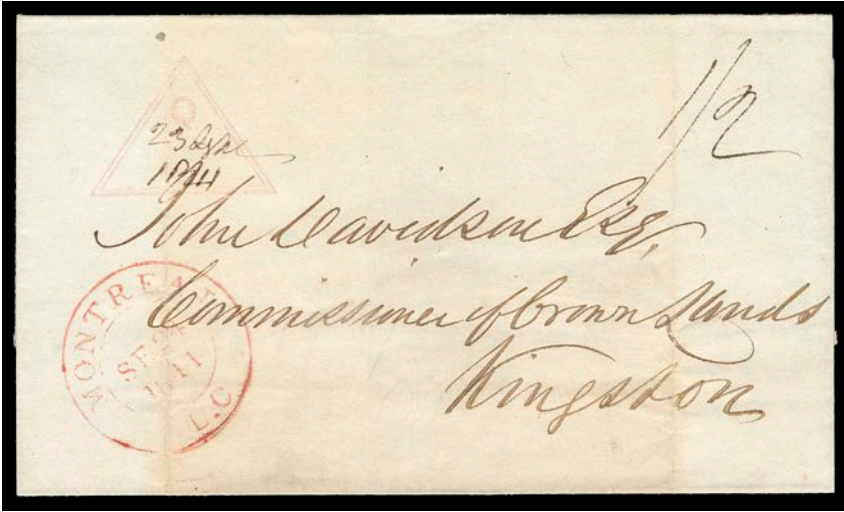 Q
1/2
23
John Davidson Esq.
Commissioner of Crown Lands
Kingston
MONTREAL
SE 24
1841
L.C.